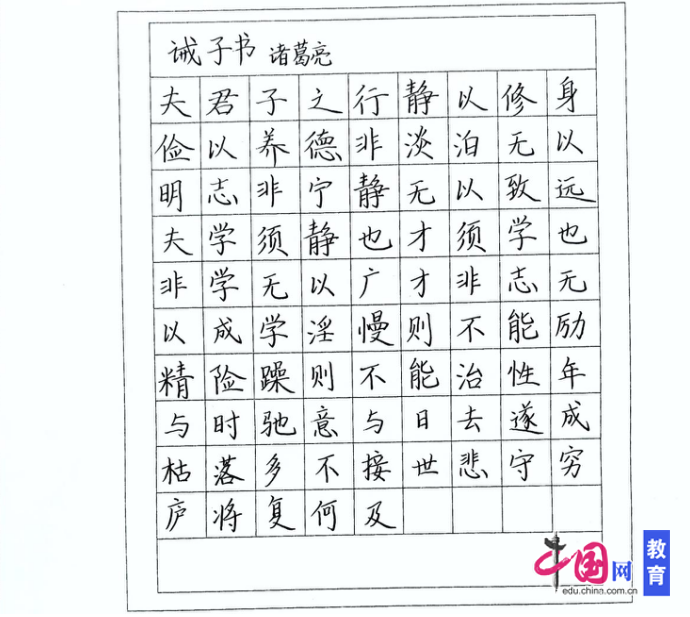 诫子书 诸葛亮
夫君子之行静以修身
俭以养德非淡泊无以
明志非宁静无以致远
夫学须静也才须学也
非学无以广才非志无
以成学淫慢则不能励
精险躁则不能治性年
与时驰意与日去遂成
枯落多不接世悲守穷
庐将复何及
中国网 教育
edu.china.com.cn